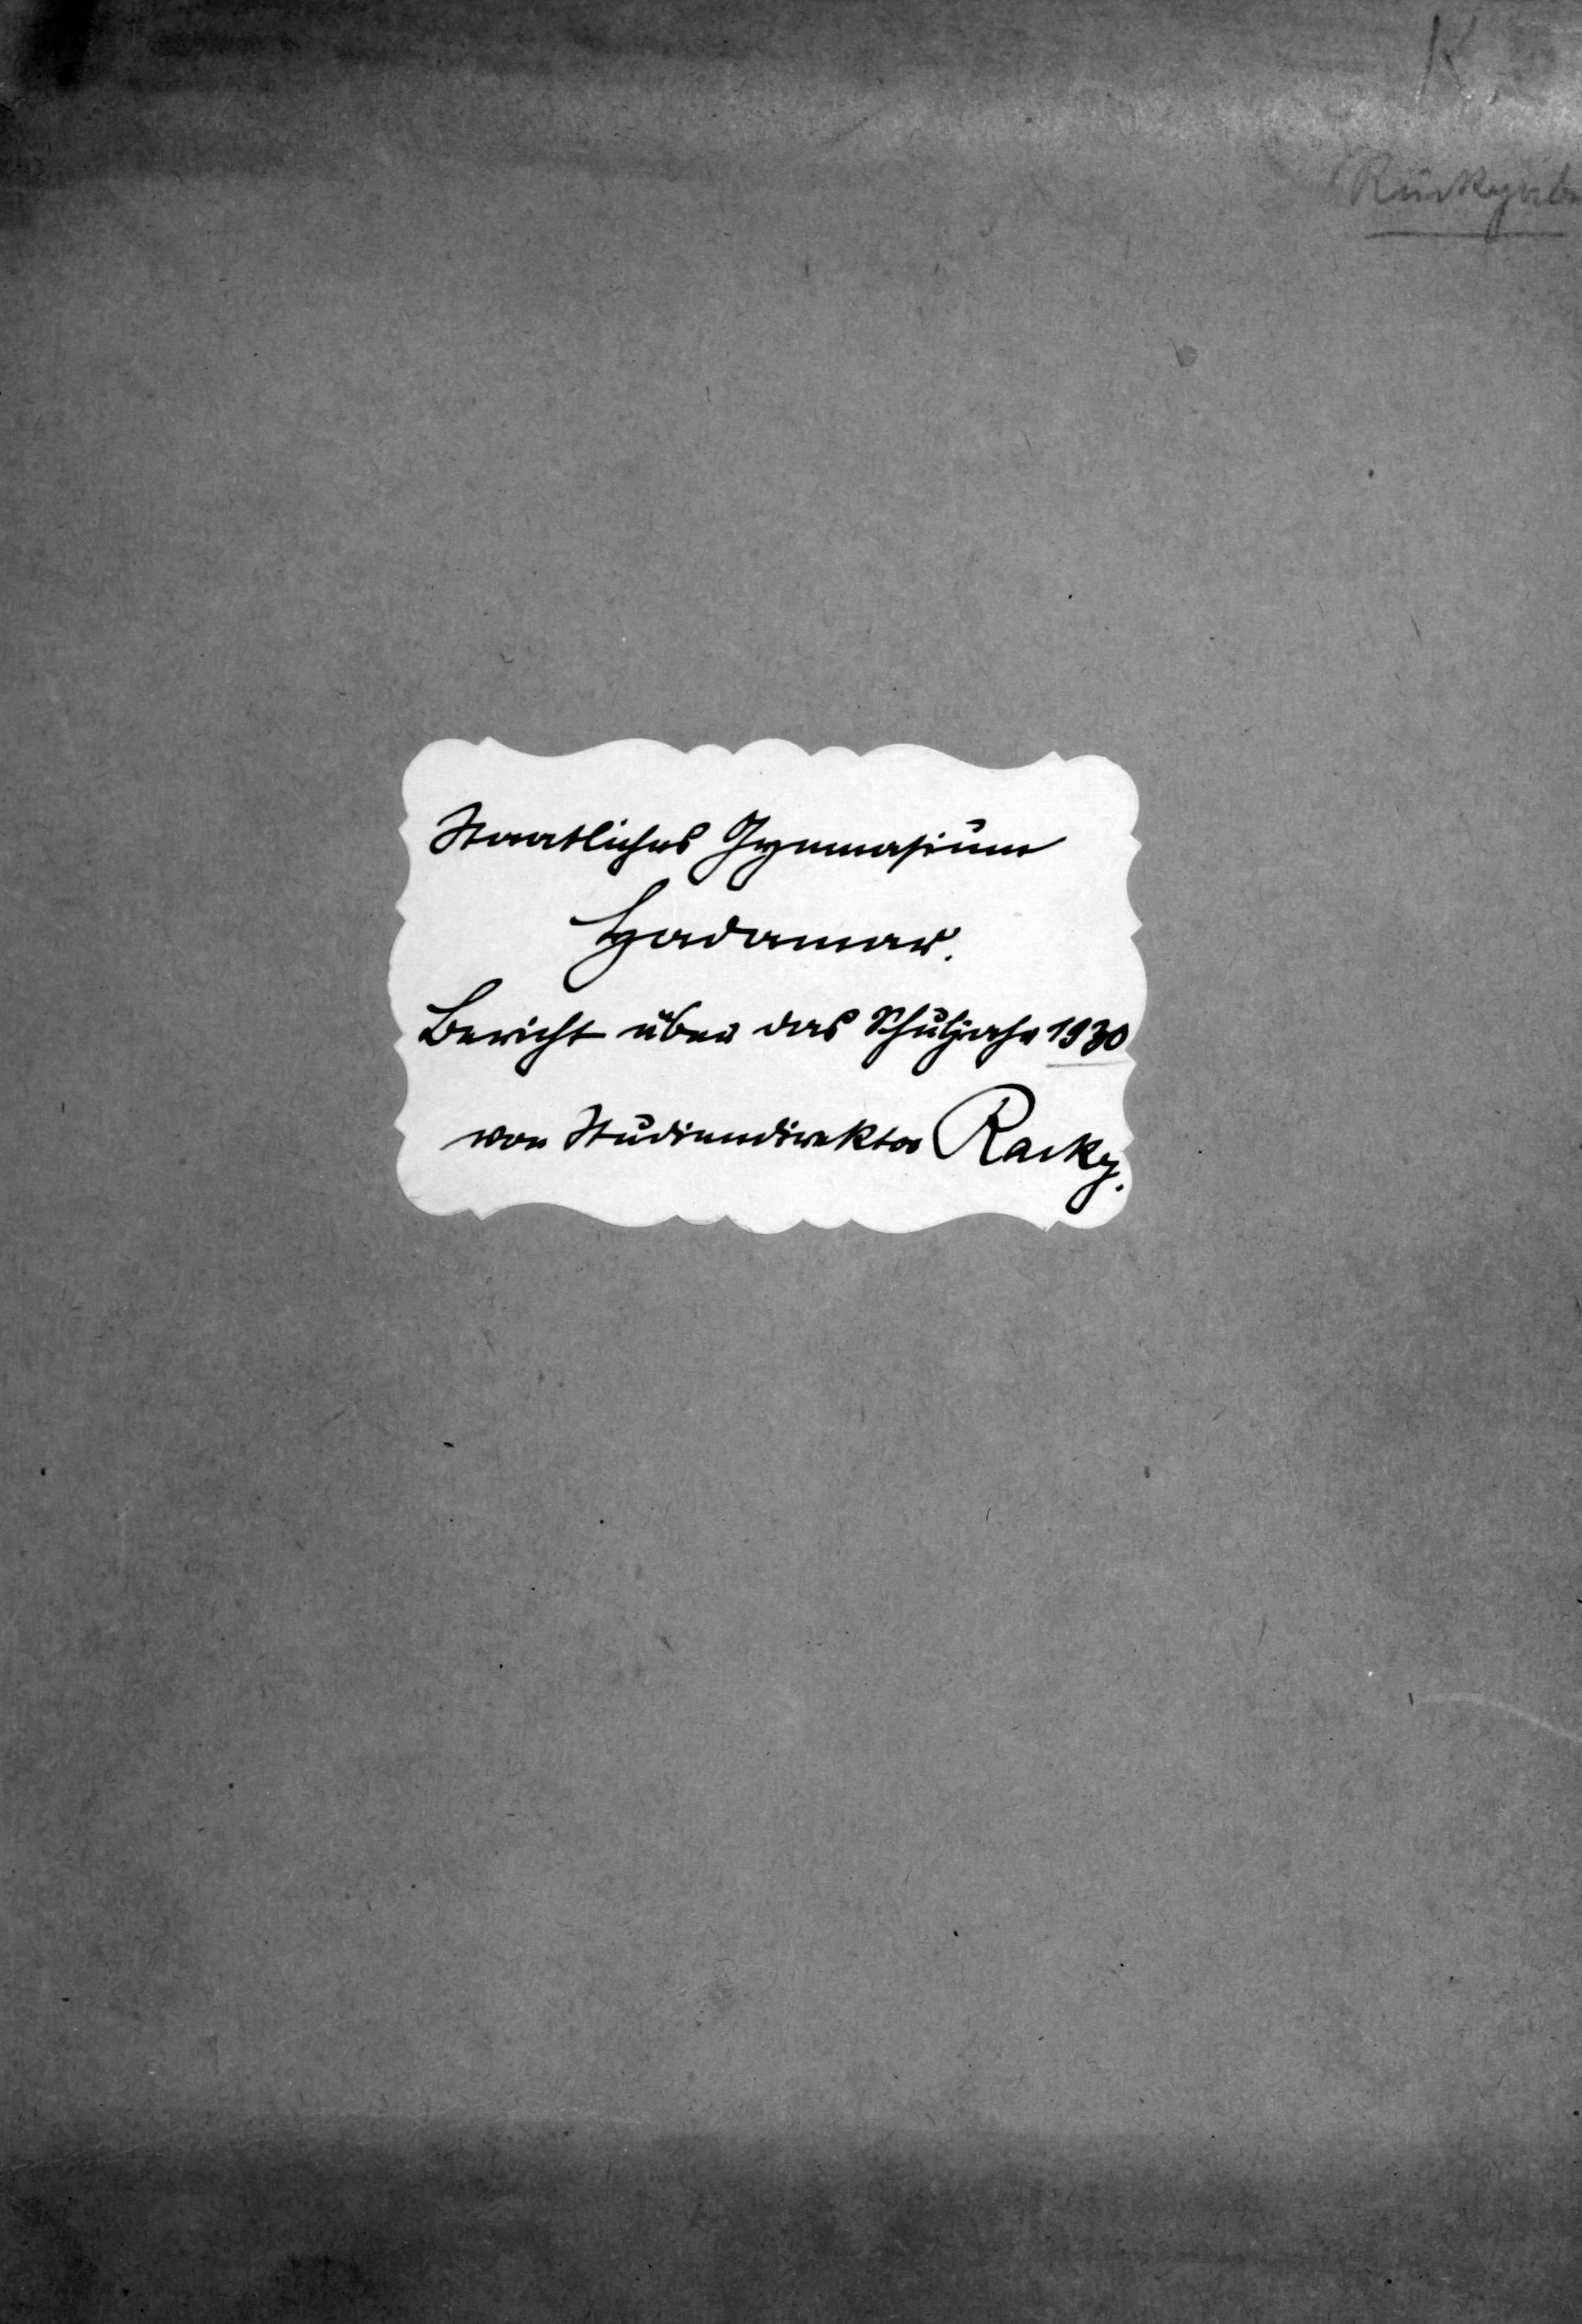 K.
Rückgabe
Staatliches Gymnasium
Hadamar.
Bericht über das Schuljahr 1930
von Studiendirektor Racky.